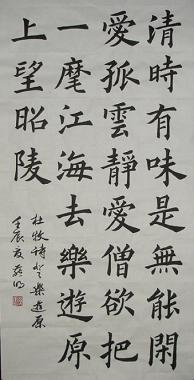 清時有味是無能閑
愛孤雲靜愛僧欲把
一麾江海去樂遊原
上望昭陵
杜牧詩登樂遊原
壬辰夏